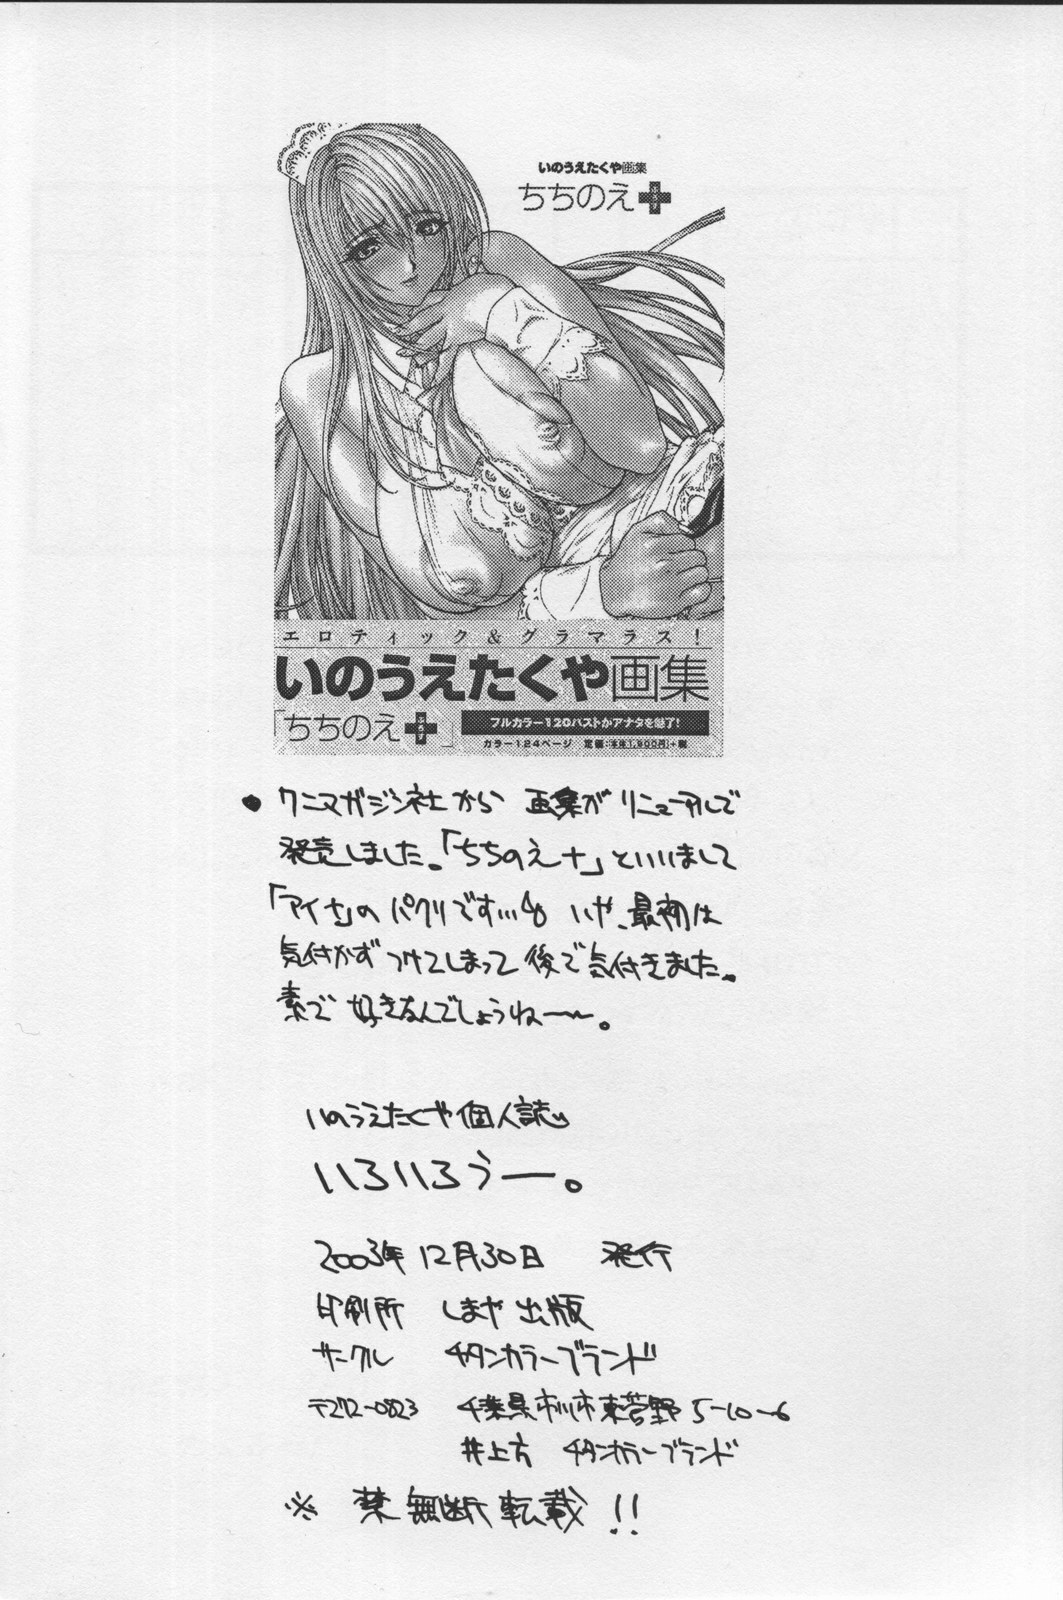 いのうえたくや画集
ちちのえ
ぷらす
エロティック&グラマラス!
いのうえたくや画集
「ちちのえ
ぷらす
」
フルカラー120バストがアナタを魅了!
カラー124ページ 定価:本体1,900円+税
● ワニマガジン社から 画集がリニューアルして
発売しました。「ちちのえ+」といいまして
のパクリです… いや、最初は
気付かずつけてしまって後で気付きました。
素で好きなんでしょうね〜。
いのうえたくや個人誌
いろいろうー。
2003年12月30日 発行
印刷所 しまや出版
サークル チタンカラーブランド
〒272-0823 千葉県市川市東菅野5-10-6
井上方 チタンカラーブランド
※ 禁無断転載!!